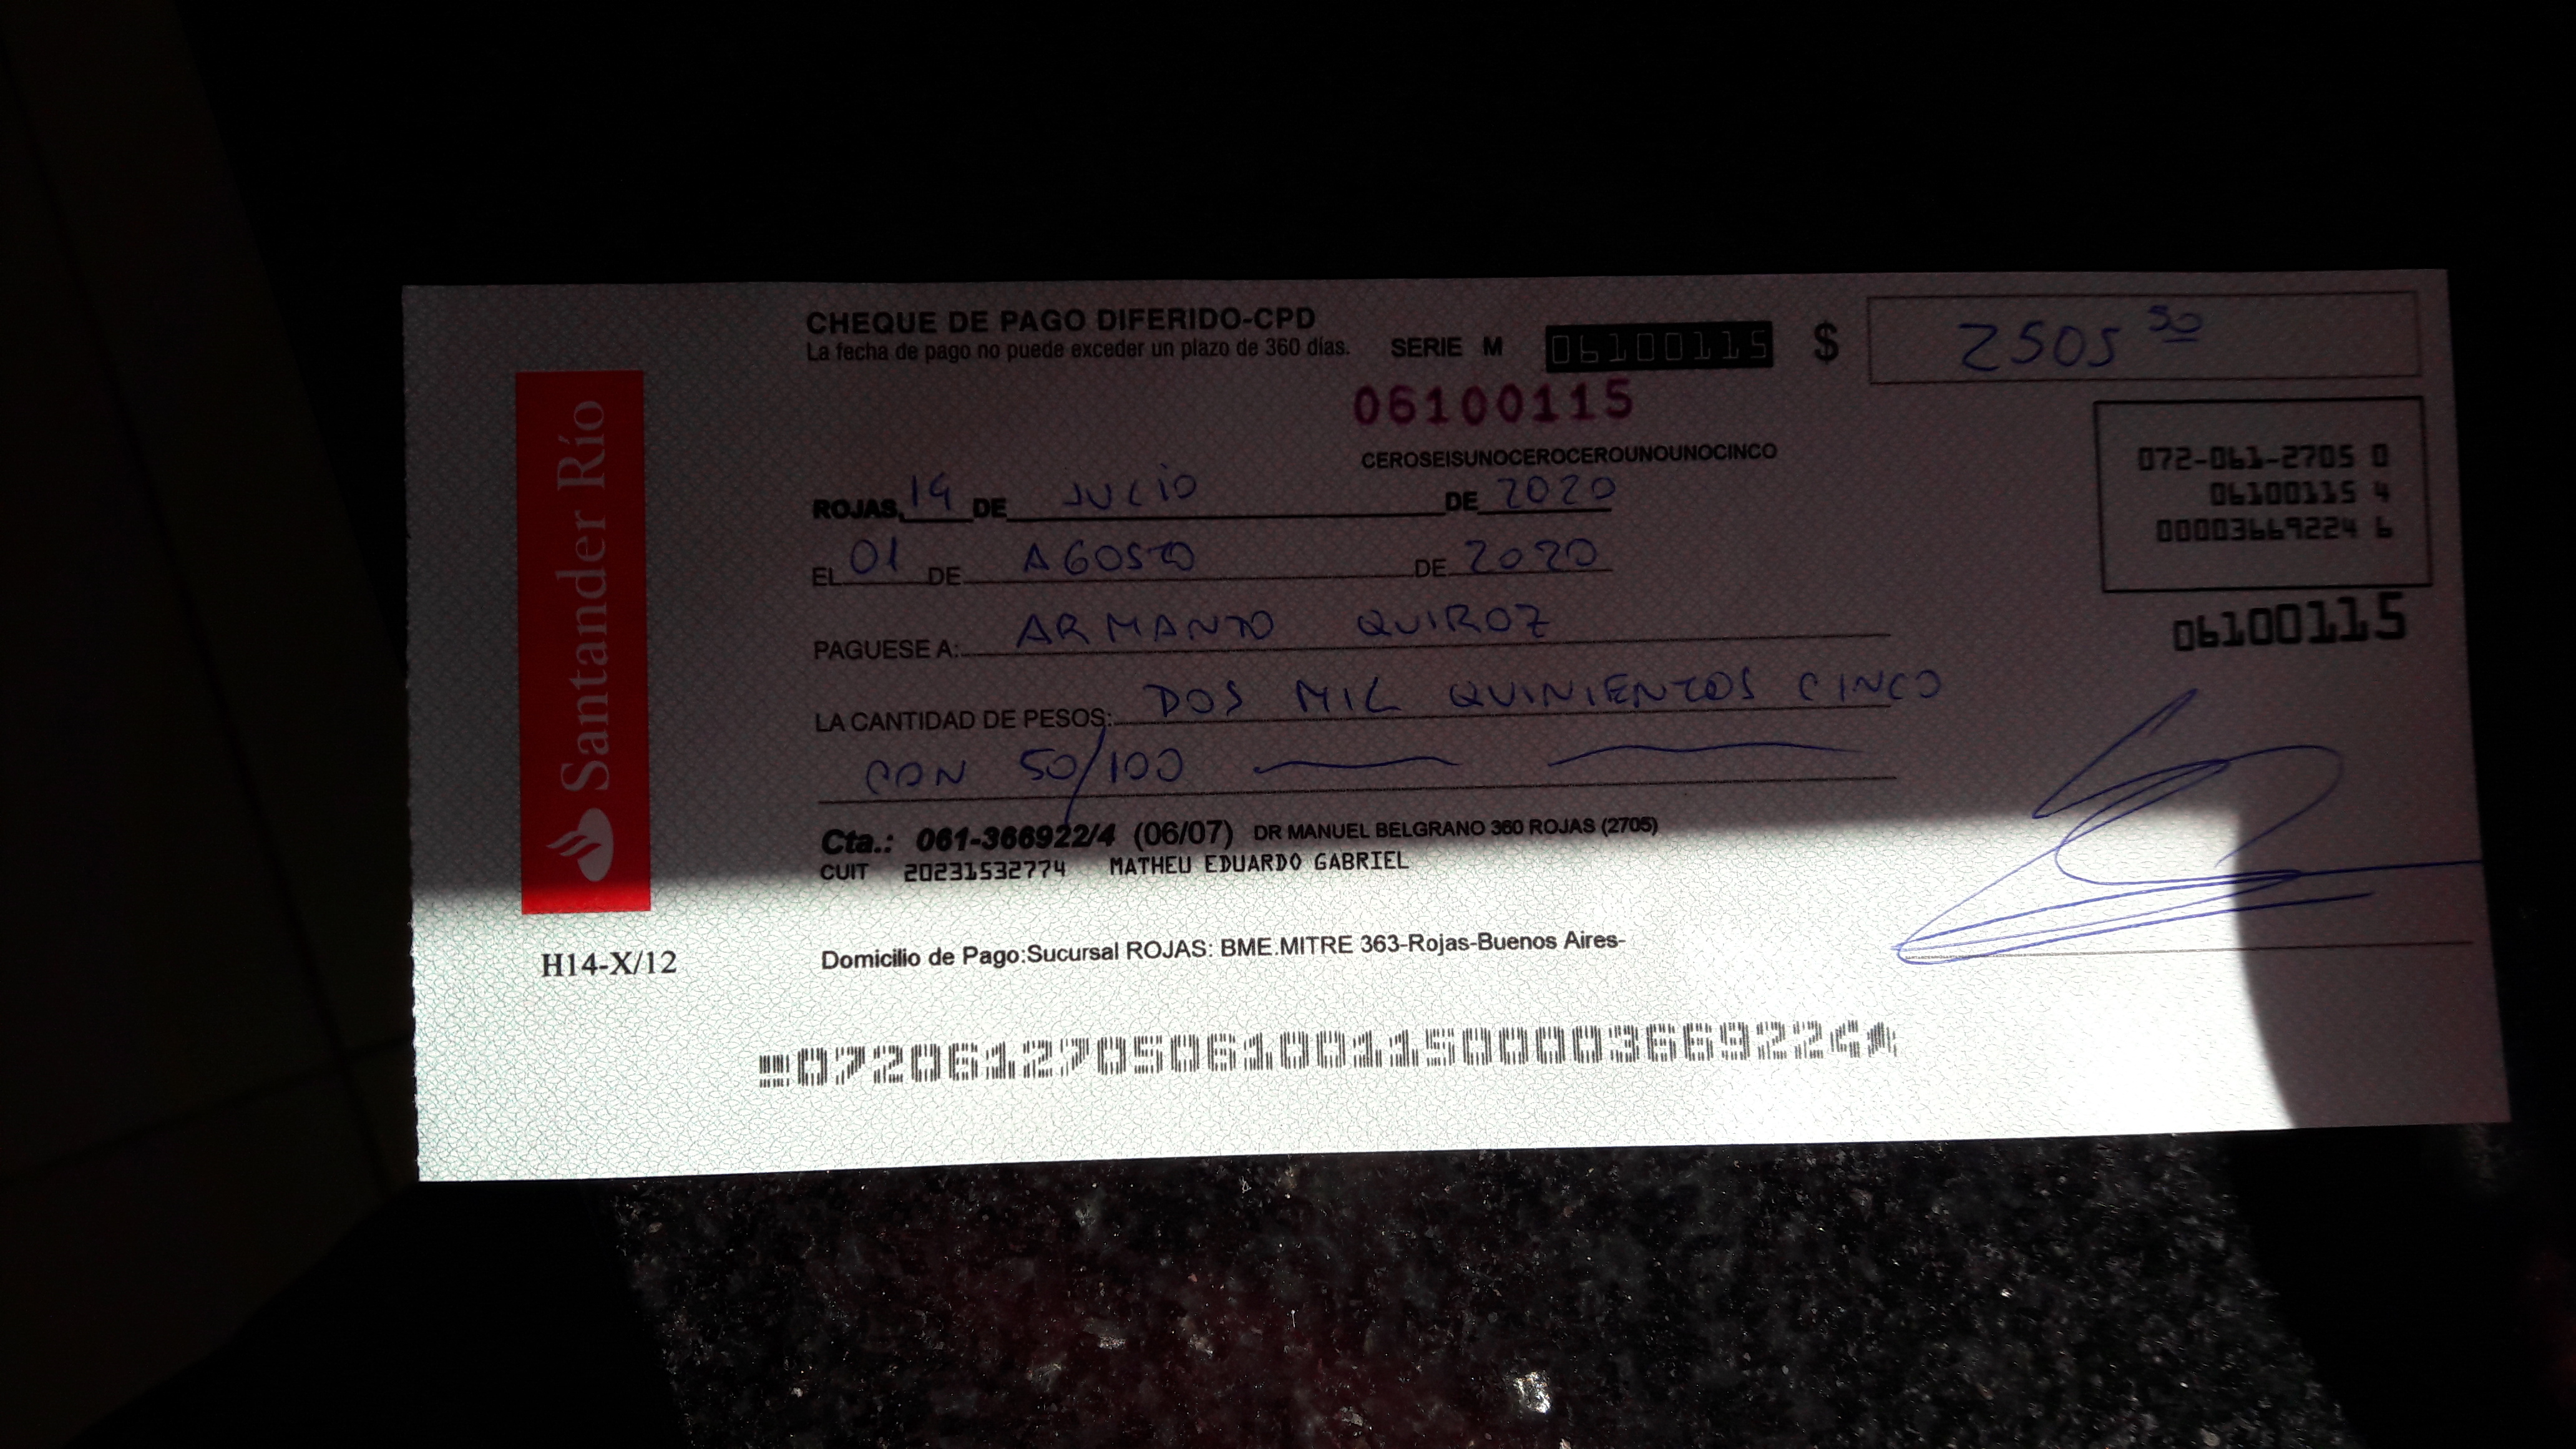 CHEQUE DE PAGO DIFERIDO-CPD
La fecha de pago no puede exceder un plazo de 360 días.
SERIE M 06100115 $ 2505 50
06100115
CEROSEISUNOCEROCEROUNOUNOCINCO
072-061-2705 0
06100115 4
00003669224 6
06100115
ROJAS, 14 DE JULIO DE 2020
EL 01 DE AGOSTO DE 2020
PAGUESE A: ARMANDO QUIROZ
LA CANTIDAD DE PESOS: DOS MIL QUINIENTOS CINCO
CON 50/100
Cta.: 061-366922/4 (06/07) DR MANUEL BELGRANO 360 ROJAS (2705)
CUIT 20231532774 MATHEU EDUARDO GABRIEL
Santander Río
H14-X/12
Domicilio de Pago:Sucursal ROJAS: BME.MITRE 363-Rojas-Buenos Aires-
07206127050610011500003669224